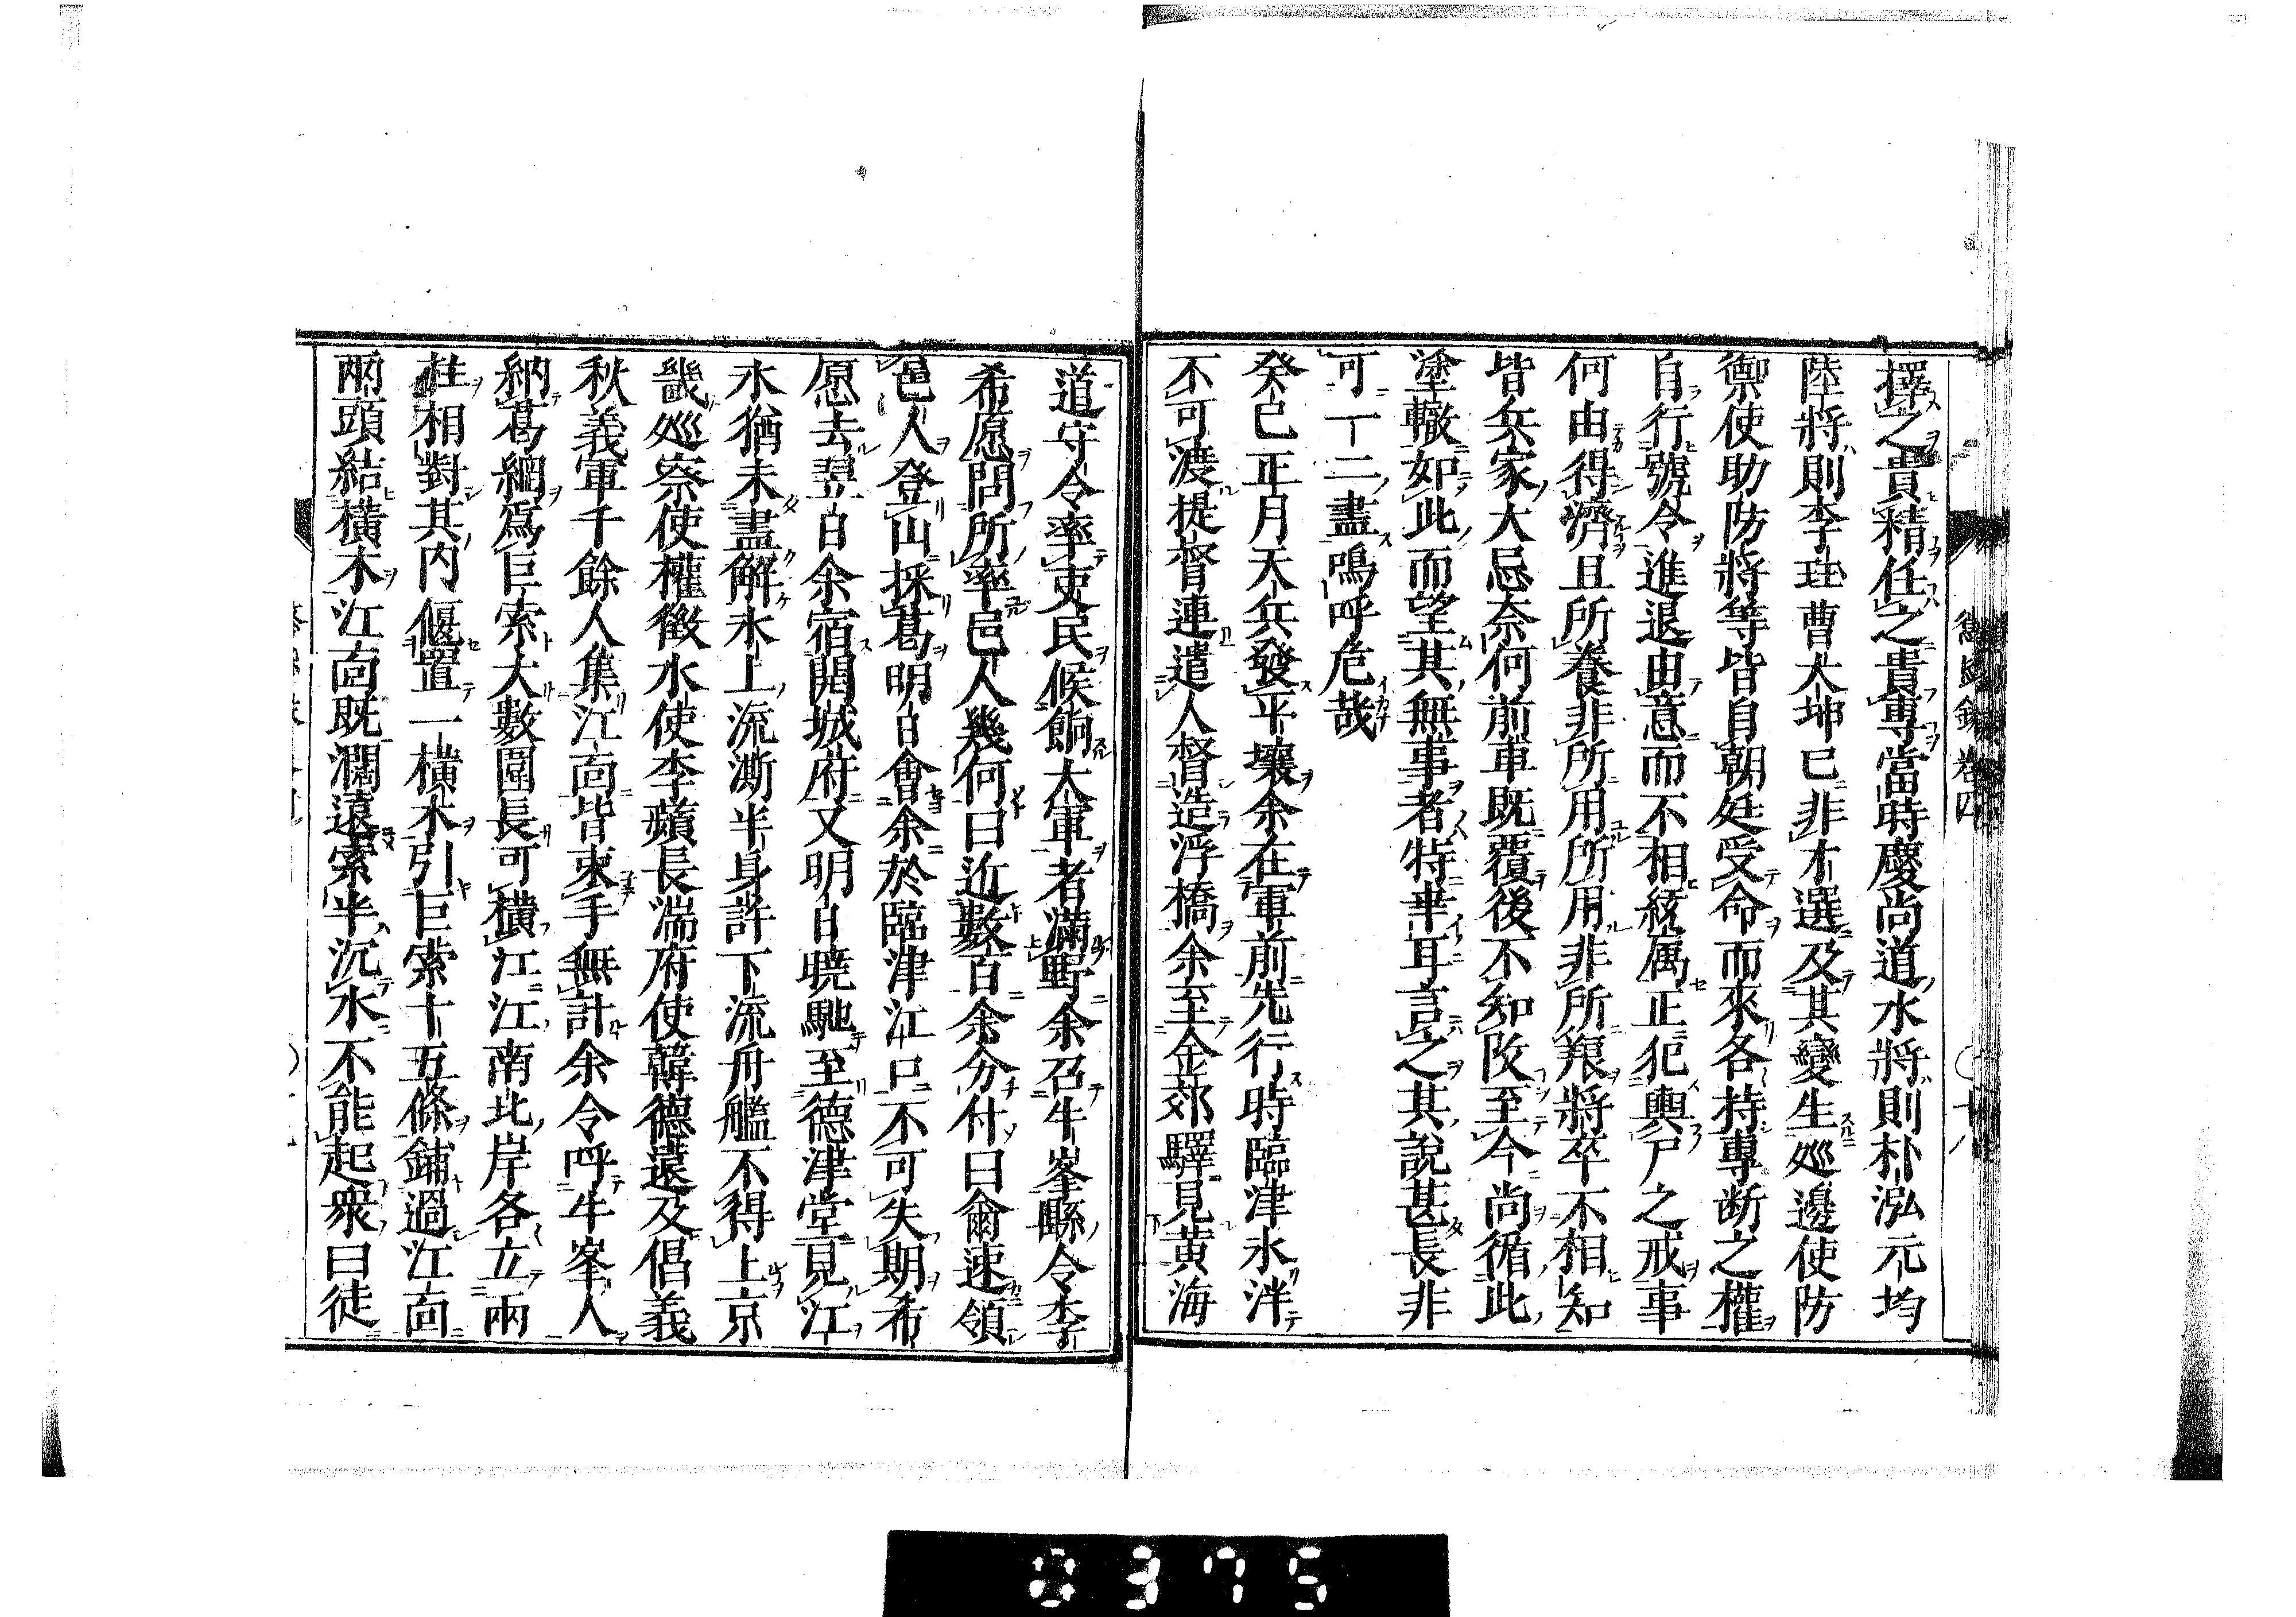 擇之貴精任之貴專當時慶尚道水將則朴泓元均
陸將則李珏曹大坤已非才選及其變生巡邊使防
禦使助防將等皆自朝廷受命而來各持專断之權
自行號令進退由意而不相統属正犯輿尸之戒事
何由得濟且所養非所用所用非所養將卒不相知
皆兵家大忌奈何前車既覆後不知改至今尚循此
塗轍如此而望其無事者特幸耳言之其說甚長非
可一二盡嗚呼危哉
癸巳正月天兵發平壤余在軍前先行時臨津氷泮
不可渡提督連遣人督造浮橋余至金郊驛見黄海
道守令率吏民候餉大軍者滿野余召牛峯縣令李
希愿問所率邑人幾何曰近數百余分付曰爾速領
邑人登山採葛明日會余於臨津江口不可失期希
愿去翌日余宿開城府又明日曉馳至德津堂見江
氷猶未盡解氷上流澌半身許下流舟艦不得上京
畿巡察使權徵水使李蘋長湍府使韓德遠及倡義
秋義軍千餘人集江面皆束手無計余令呼牛峯人
納葛綯爲巨索大數圍長可橫江江南北岸各立兩
柱相對其内偃置一橫木引巨索十五條鋪過江面
兩頭結橫木江面既濶遠索半沉水不能起衆曰徒
懲毖録卷四